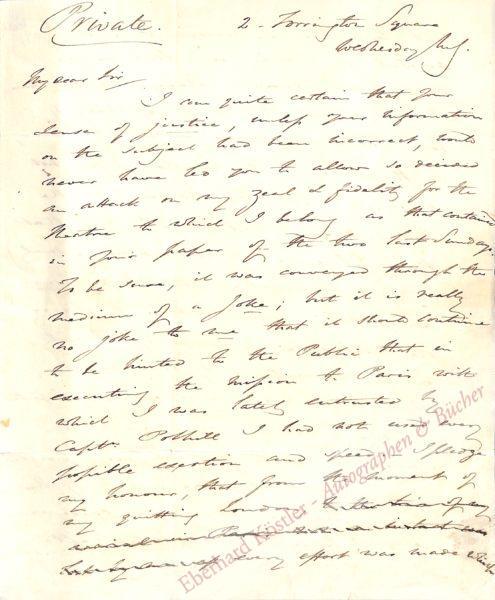 Private.
2 Torrington Square
Wednesday
My dear Sir,
I am quite certain that your
sense of justice, unless your information
on the subject had been incorrect, would
never have led you to allow so decided
an attack on my zeal & fidelity for the
theatre to which I belong as that contained
in your paper of the two last Sundays.
To be sure, it was conveyed through the
medium of a Joke; but it is really
no joke to me that it should continue
to be hinted to the Public that in
executing the mission to Paris with
which I was lately entrusted by
Captn Polhill I had not used every
possible exertion and speed. I pledge
my honour, that from the moment of
my quitting London to the
every effort was made
Eberhard Köstler - Autographen & Bücher